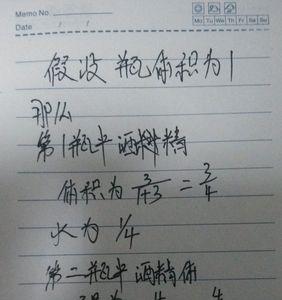 Memo No.
Mo Tu We Th Fr Sa Su
Date / /
假设瓶体积为1
那么
第1瓶中酒精
体积为 3/(1+3) = 3/4
水为 1/4
第二瓶中酒精体